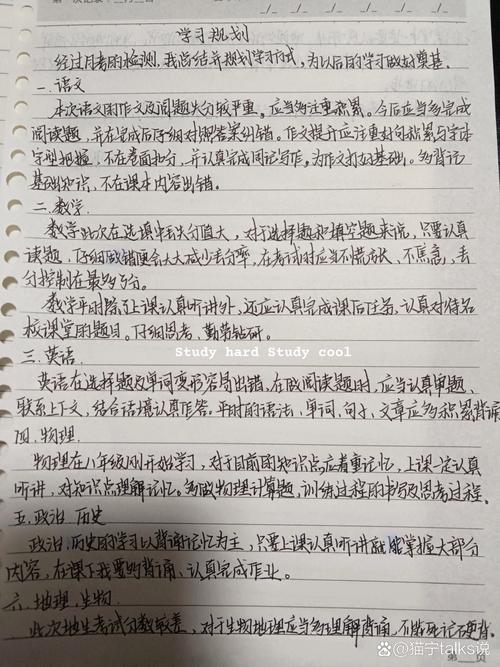 学习规划
经过月考的检测,我总结并规划学习方式,为以后的学习做好奠基.
一.语文
本次语文的作文及阅题失分较严重。应当多注重积累。今后应当多完成
阅读题,并在完成后仔细对照答案纠错。作文提升应注重好句积累与字体
字型把握,不在卷面扣分,并认真完成周记写作。为作文打好基础。多背记
基础知识,不在课本内容出错。
二.数学.
数学此次在选填中丢失分值大,对于选择题和填空题来说,只要认真
读题,仔细做错便会大大减少丢分率,在考试时应当不慌
不焦高,丢
分控制在最多5分。
数学平时除了上课认真听讲外,还应认真完成课后任务,认真对待名
校课堂的题目。仔细思考、勤劳钻研。
Study hard Study cool
三.英语.
英语在选择题及单词变形容易出错。在做阅读题时,应当认真审题、
联系上下文,结合语境认真作答。平时的语法、单词、句子、文章应多积累背诵
四.物理.
物理在八年级刚开始学习,对于目前的知识点应着重记忆,上课一定认真
听讲,对知识点理解记忆。多做物理计算题,训练过程的书写及思考过程.
五.政治.历史
政治、历史的学习以背诵记忆为主,只要上课认真听讲就能掌握大部分
内容,在课下我要
背诵、认真完成作业。
六.地理.生物.
此次地生考试分数较差,对于生物地理应当多理解背诵,不能死记硬背.
第 页
猫宁talks说